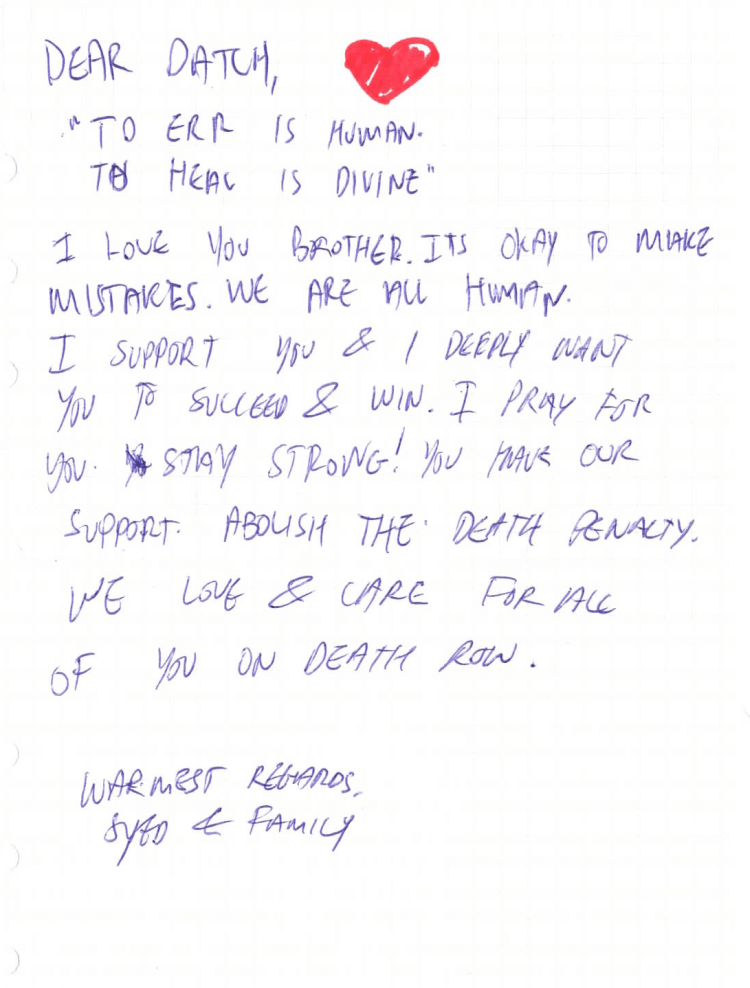 DEAR DATCH,
"TO ERR IS HUMAN.
TO HEAL IS DIVINE"
I LOVE YOU BROTHER. ITS OKAY TO MAKE
MISTAKES. WE ARE ALL HUMAN.
I SUPPORT YOU & I DEEPLY WANT
YOU TO SUCCEED & WIN. I PRAY FOR
YOU. STAY STRONG! YOU HAVE OUR
SUPPORT. ABOLISH THE DEATH PENALTY.
WE LOVE & CARE FOR ALL
OF YOU ON DEATH ROW.
WARMEST REGARDS,
SYED & FAMILY